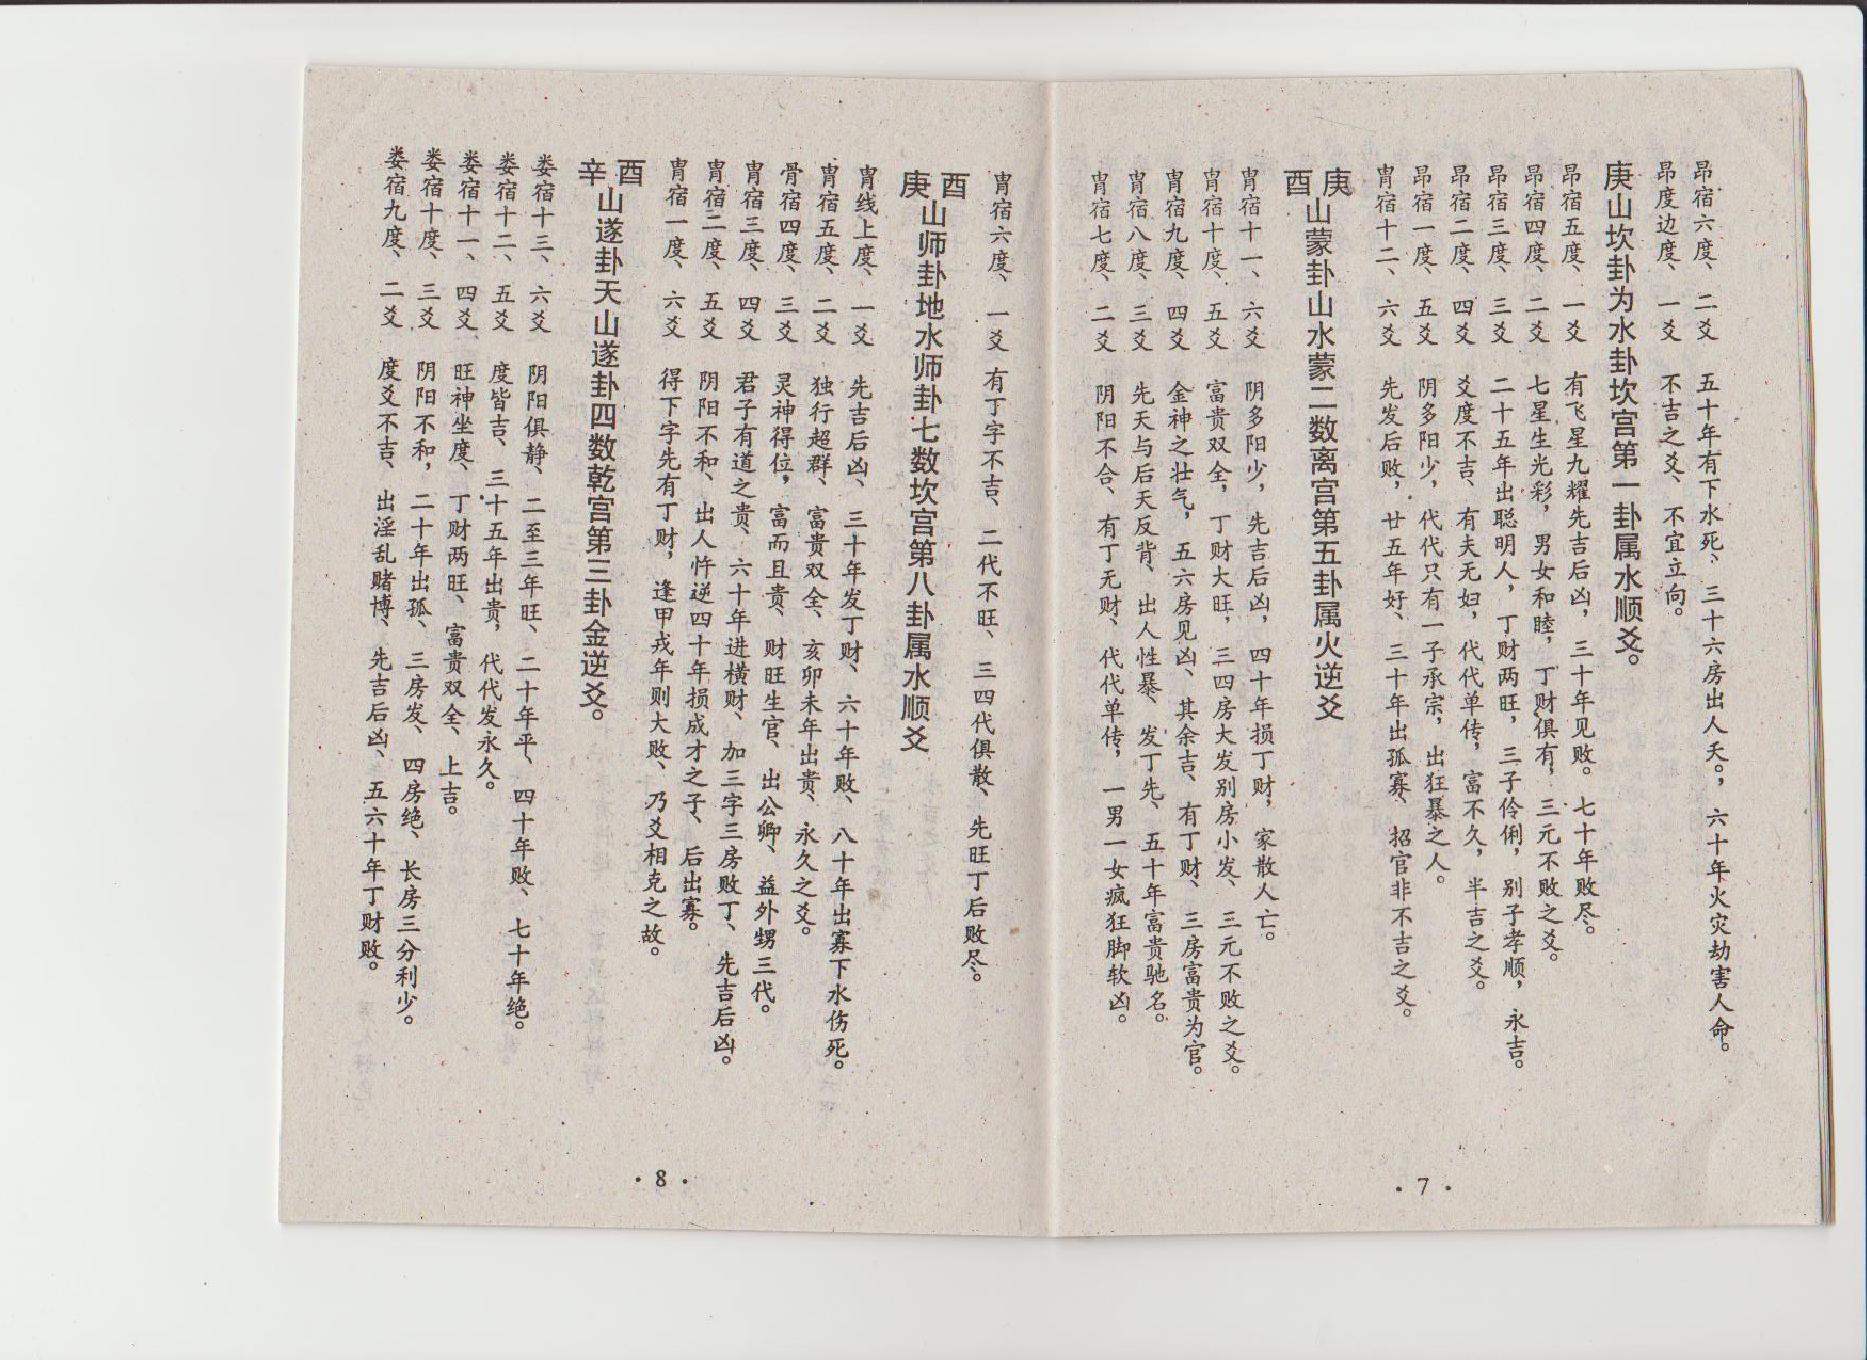 昂宿六度、二爻 五十年有下水死、三十六房出人夭。，六十年火灾劫害人命。
昂度边度、一爻 不吉之爻、不宜立向。
庚山坎卦为水卦坎宫第一卦属水顺爻。
昂宿五度、一爻 有飞星九耀先吉后凶，三十年见败。七十年败尽。
昂宿四度、二爻 七星生光彩，男女和睦，丁财俱有，三元不败之爻。
昂宿三度、三爻 二十五年出聪明人，丁财两旺，三子伶俐，别子孝顺，永吉。
昂宿二度、四爻 爻度不吉、有夫无妇，代代单传，富不久，半吉之爻。
昂宿一度、五爻 阴多阳少，代代只有一子承宗，出狂暴之人。
胄宿十二、六爻 先发后败，廿五年好、三十年出孤寡、招官非不吉之爻。
庚酉山蒙卦山水蒙二数离宫第五卦属火逆爻
胄宿十一、六爻 阴多阳少，先吉后凶，四十年损丁财，家散人亡。
胄宿十度、五爻 富贵双全，丁财大旺，三四房大发别房小发、三元不败之爻。
胄宿九度、四爻 金神之壮气，五六房见凶、其余吉、有丁财、三房富贵为官。
胄宿八度、三爻 先天与后天反背、出人性暴、发丁先、五十年富贵驰名。
胄宿七度、二爻 阴阳不合、有丁无财、代代单传，一男一女疯狂脚软凶。
胄宿六度、一爻 有丁字不吉、二代不旺、三四代俱散、先旺丁后败尽。
酉庚山师卦地水师卦七数坎宫第八卦属水顺爻
胄线上度、一爻 先吉后凶、三十年发丁财、六十年败、八十年出寡下水伤死。
胄宿五度、二爻 独行超群、富贵双全、亥卯未年出贵、永久之爻。
骨宿四度、三爻 灵神得位，富而且贵、财旺生官、出公卿、益外甥三代。
胄宿三度、四爻 君子有道之贵、六十年进横财、加三字三房败丁、先吉后凶。
胄宿二度、五爻 阴阳不和、出人忤逆四十年损成才之子、后出寡。
胄宿一度、六爻 得下字先有丁财，逢甲戎年则大败、乃爻相克之故。
酉辛山遂卦天山遂卦四数乾宫第三卦金逆爻。
娄宿十三、六爻 阴阳俱静、二至三年旺、二十年平、四十年败、七十年绝。
娄宿十二、五爻 度皆吉、三十五年出贵，代代发永久。
娄宿十一、四爻 旺神坐度、丁财两旺、富贵双全、上吉。
娄宿十度、三爻 阴阳不和，二十年出孤、三房发、四房绝、长房三分利少。
娄宿九度、二爻 度爻不吉、出淫乱赌博、先吉后凶、五六十年丁财败。
·7·
·8·